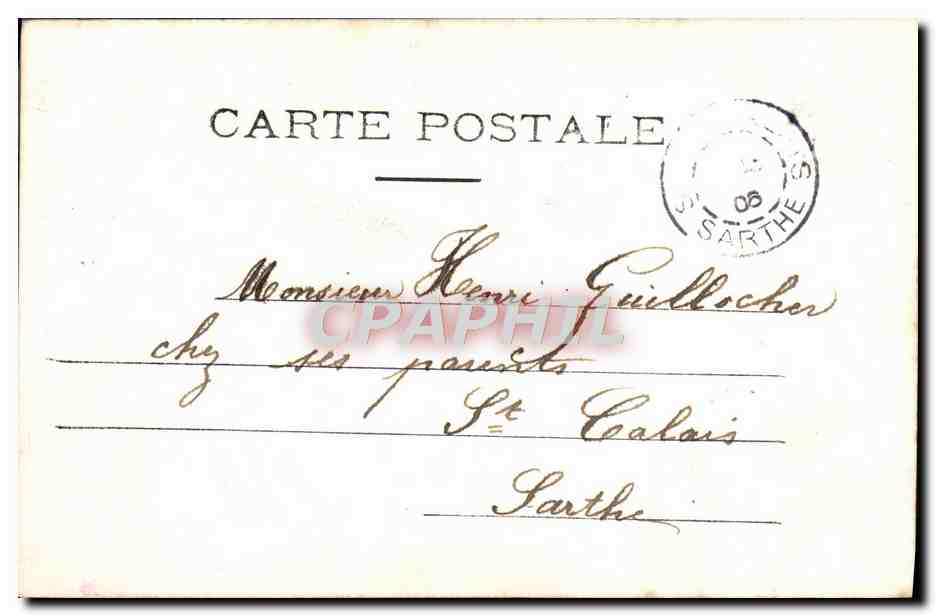 CARTE POSTALE
06
SARTHE
Monsieur Henri Guillocher
CPAPHIL
chez ses parents
St Calais
Sarthe